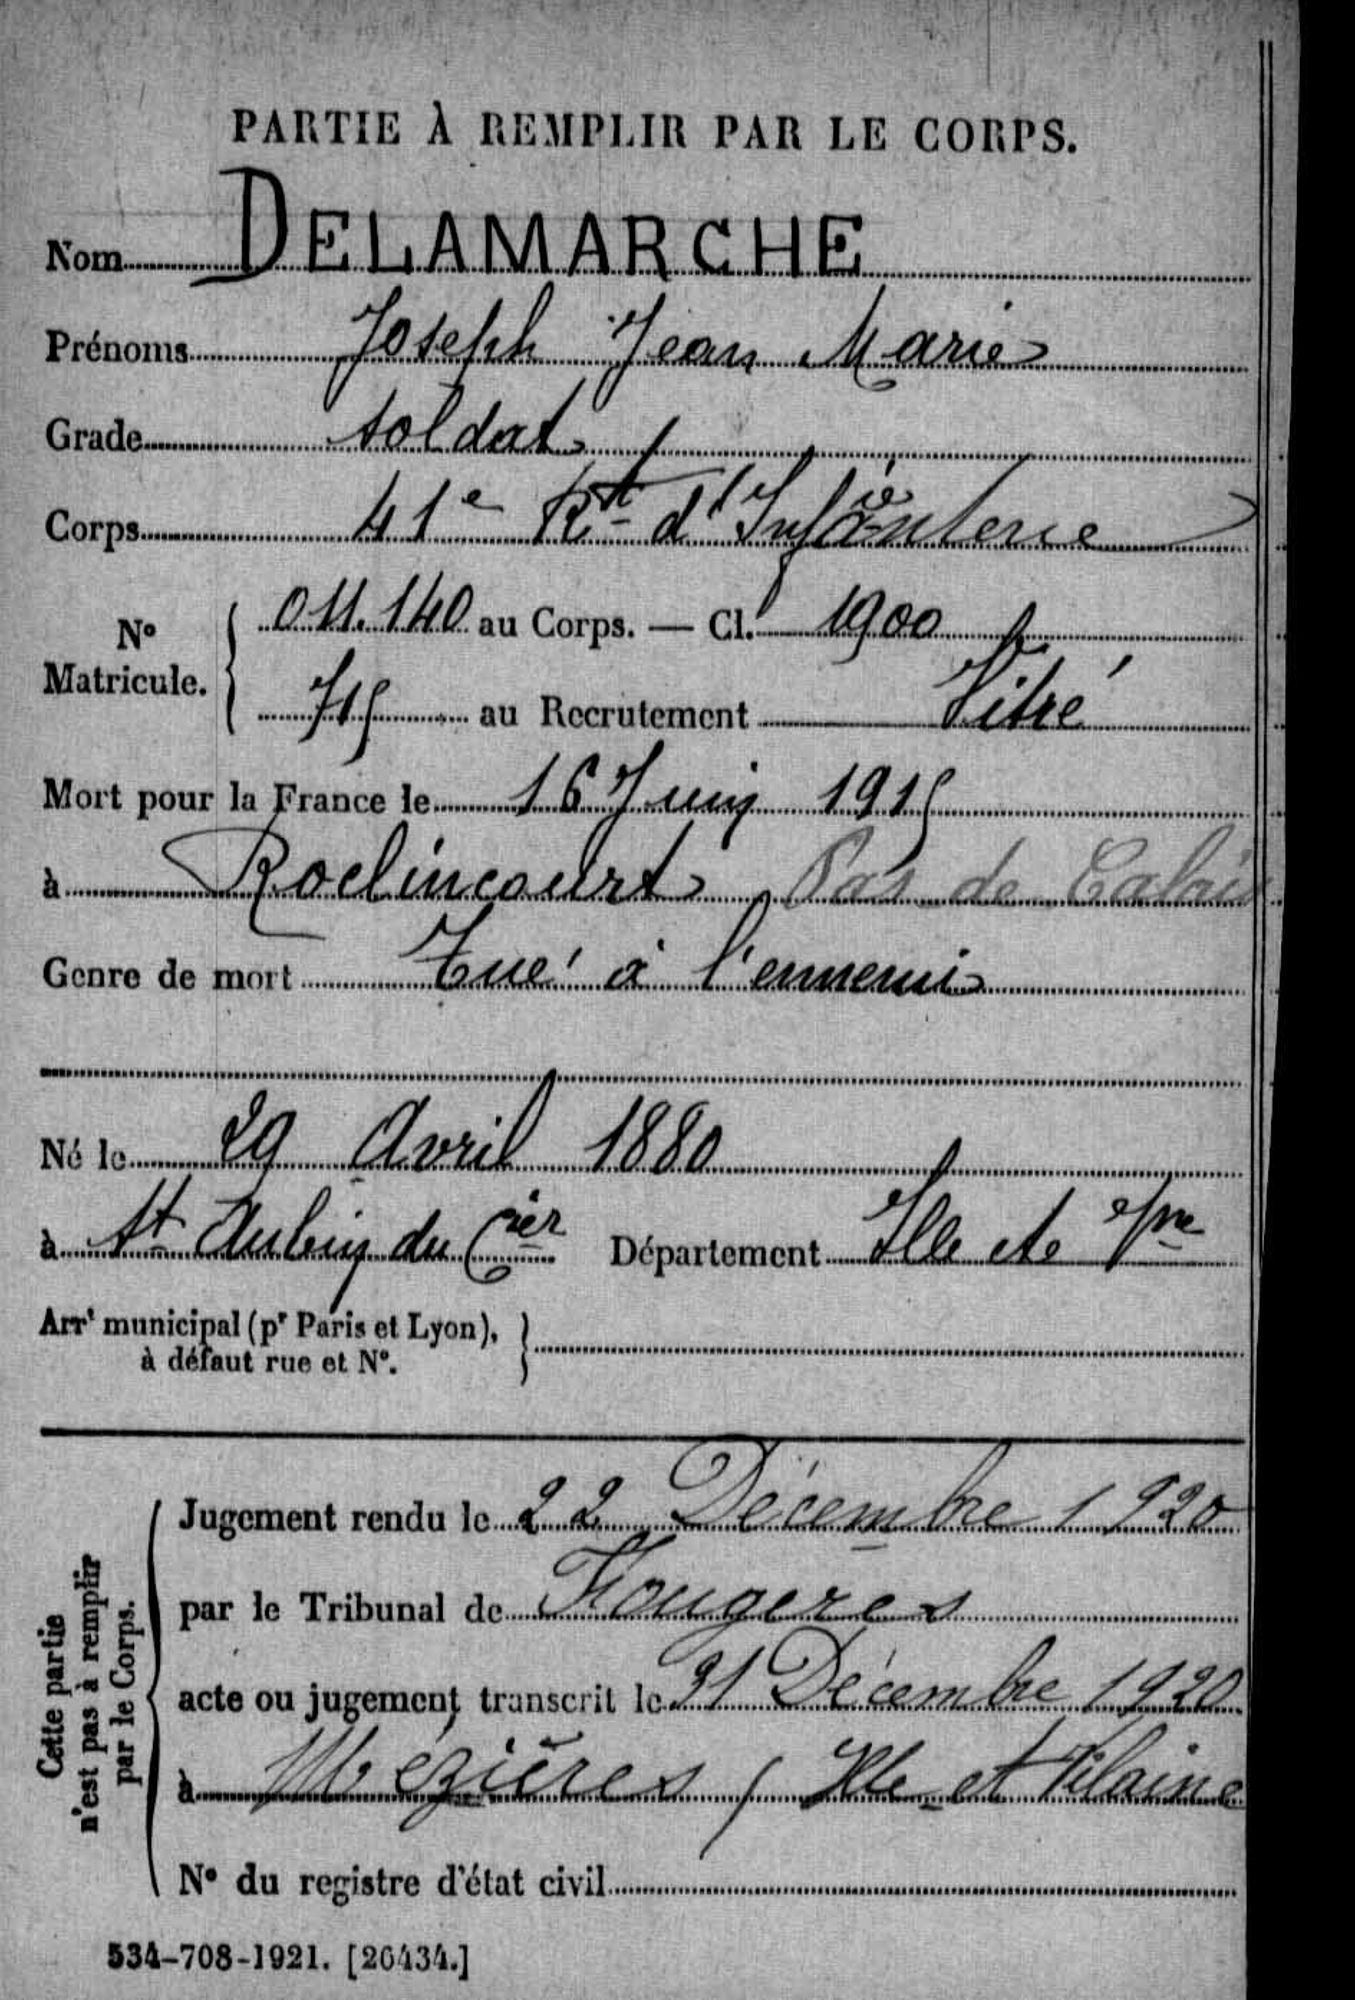 PARTIE À REMPLIR PAR LE CORPS.
Nom DELAMARCHE
Prénoms Joseph Jean Marie
Grade Soldat
Corps 41e Rt d'Infanterie
No Matricule. 011.140 au Corps. — Cl. 1900
715 au Recrutement Vitré
Mort pour la France le 16 Juin 1915
à Roclincourt Pas de Calais
Genre de mort Tué à l'ennemi
Né le 29 Avril 1880
à St Aubin du Cier Département Ille et Vne
Arrt municipal (pr Paris et Lyon),
à défaut rue et No.
Cette partie
n'est pas à remplir
par le Corps.
Jugement rendu le 22 Décembre 1920
par le Tribunal de Fougeres
acte ou jugement transcrit le 31 Décembre 1920
à Mézières, Ille et Vilaine
No du registre d'état civil
534-708-1921. [26434.]